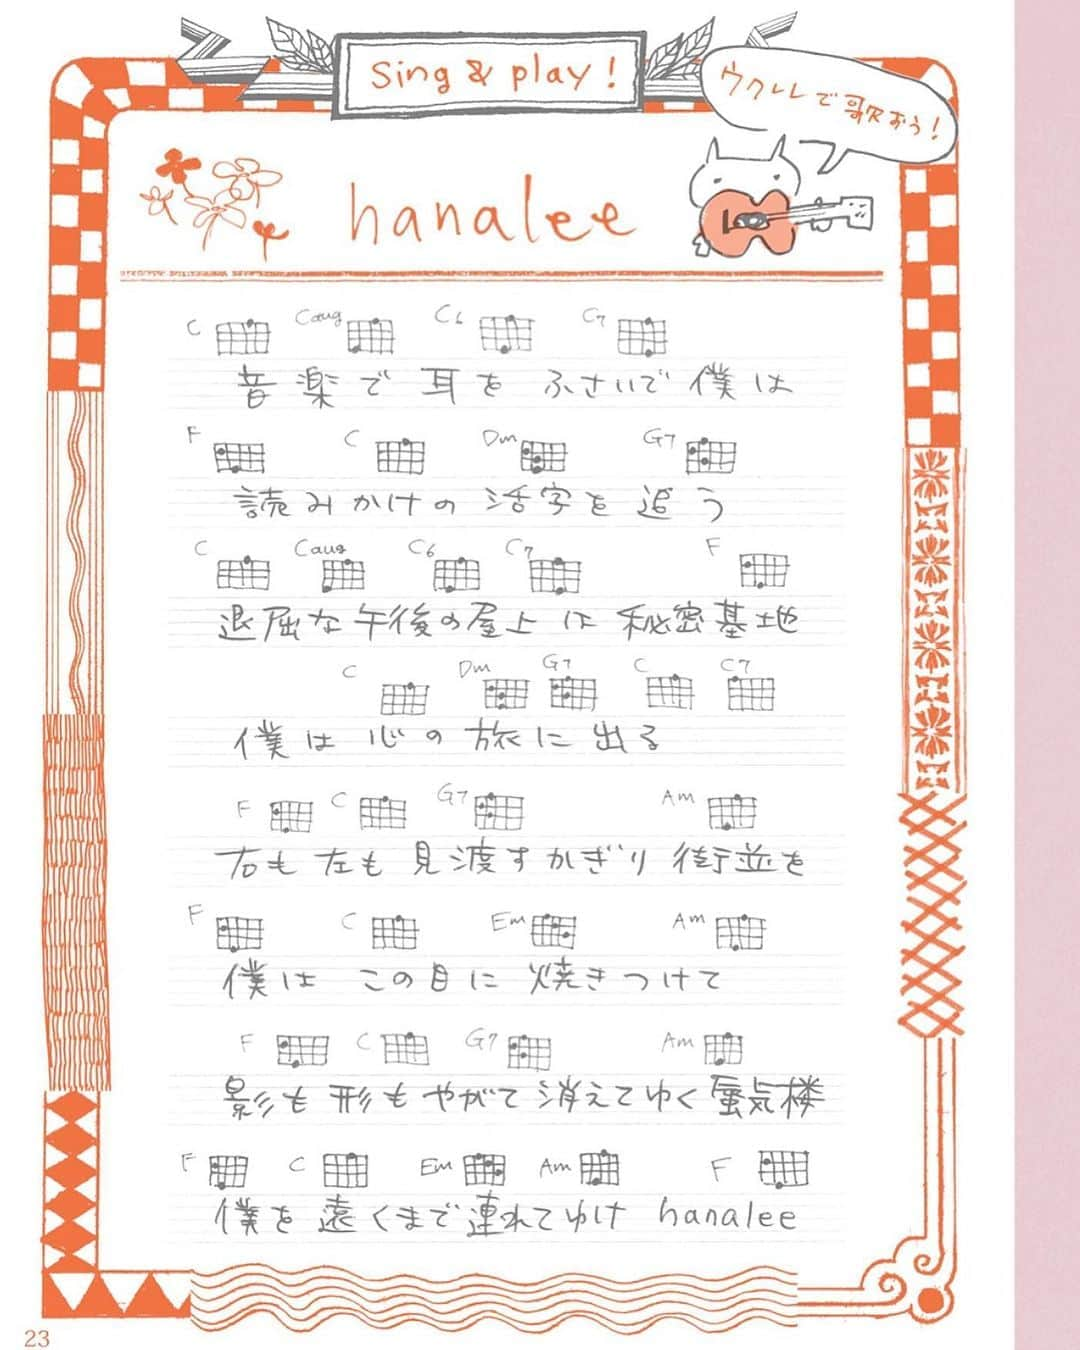 Sing & play!
ウクレレで歌おう!
hanalee
C Caug C6 C7
音楽で耳をふさいで僕は
F C Dm G7
読みかけの活字を追う
C Caug C6 C7 F
退屈な午後の屋上は秘密基地
C Dm G7 C C7
僕は心の旅に出る
F C G7 Am
右も左も見渡すかぎり街並を
F C Em Am
僕はこの目に焼きつけて
F C G7 Am
影も形もやがて消えてゆく蜃気楼
F C Em Am F
僕を遠くまで連れてゆけ hanalee
23